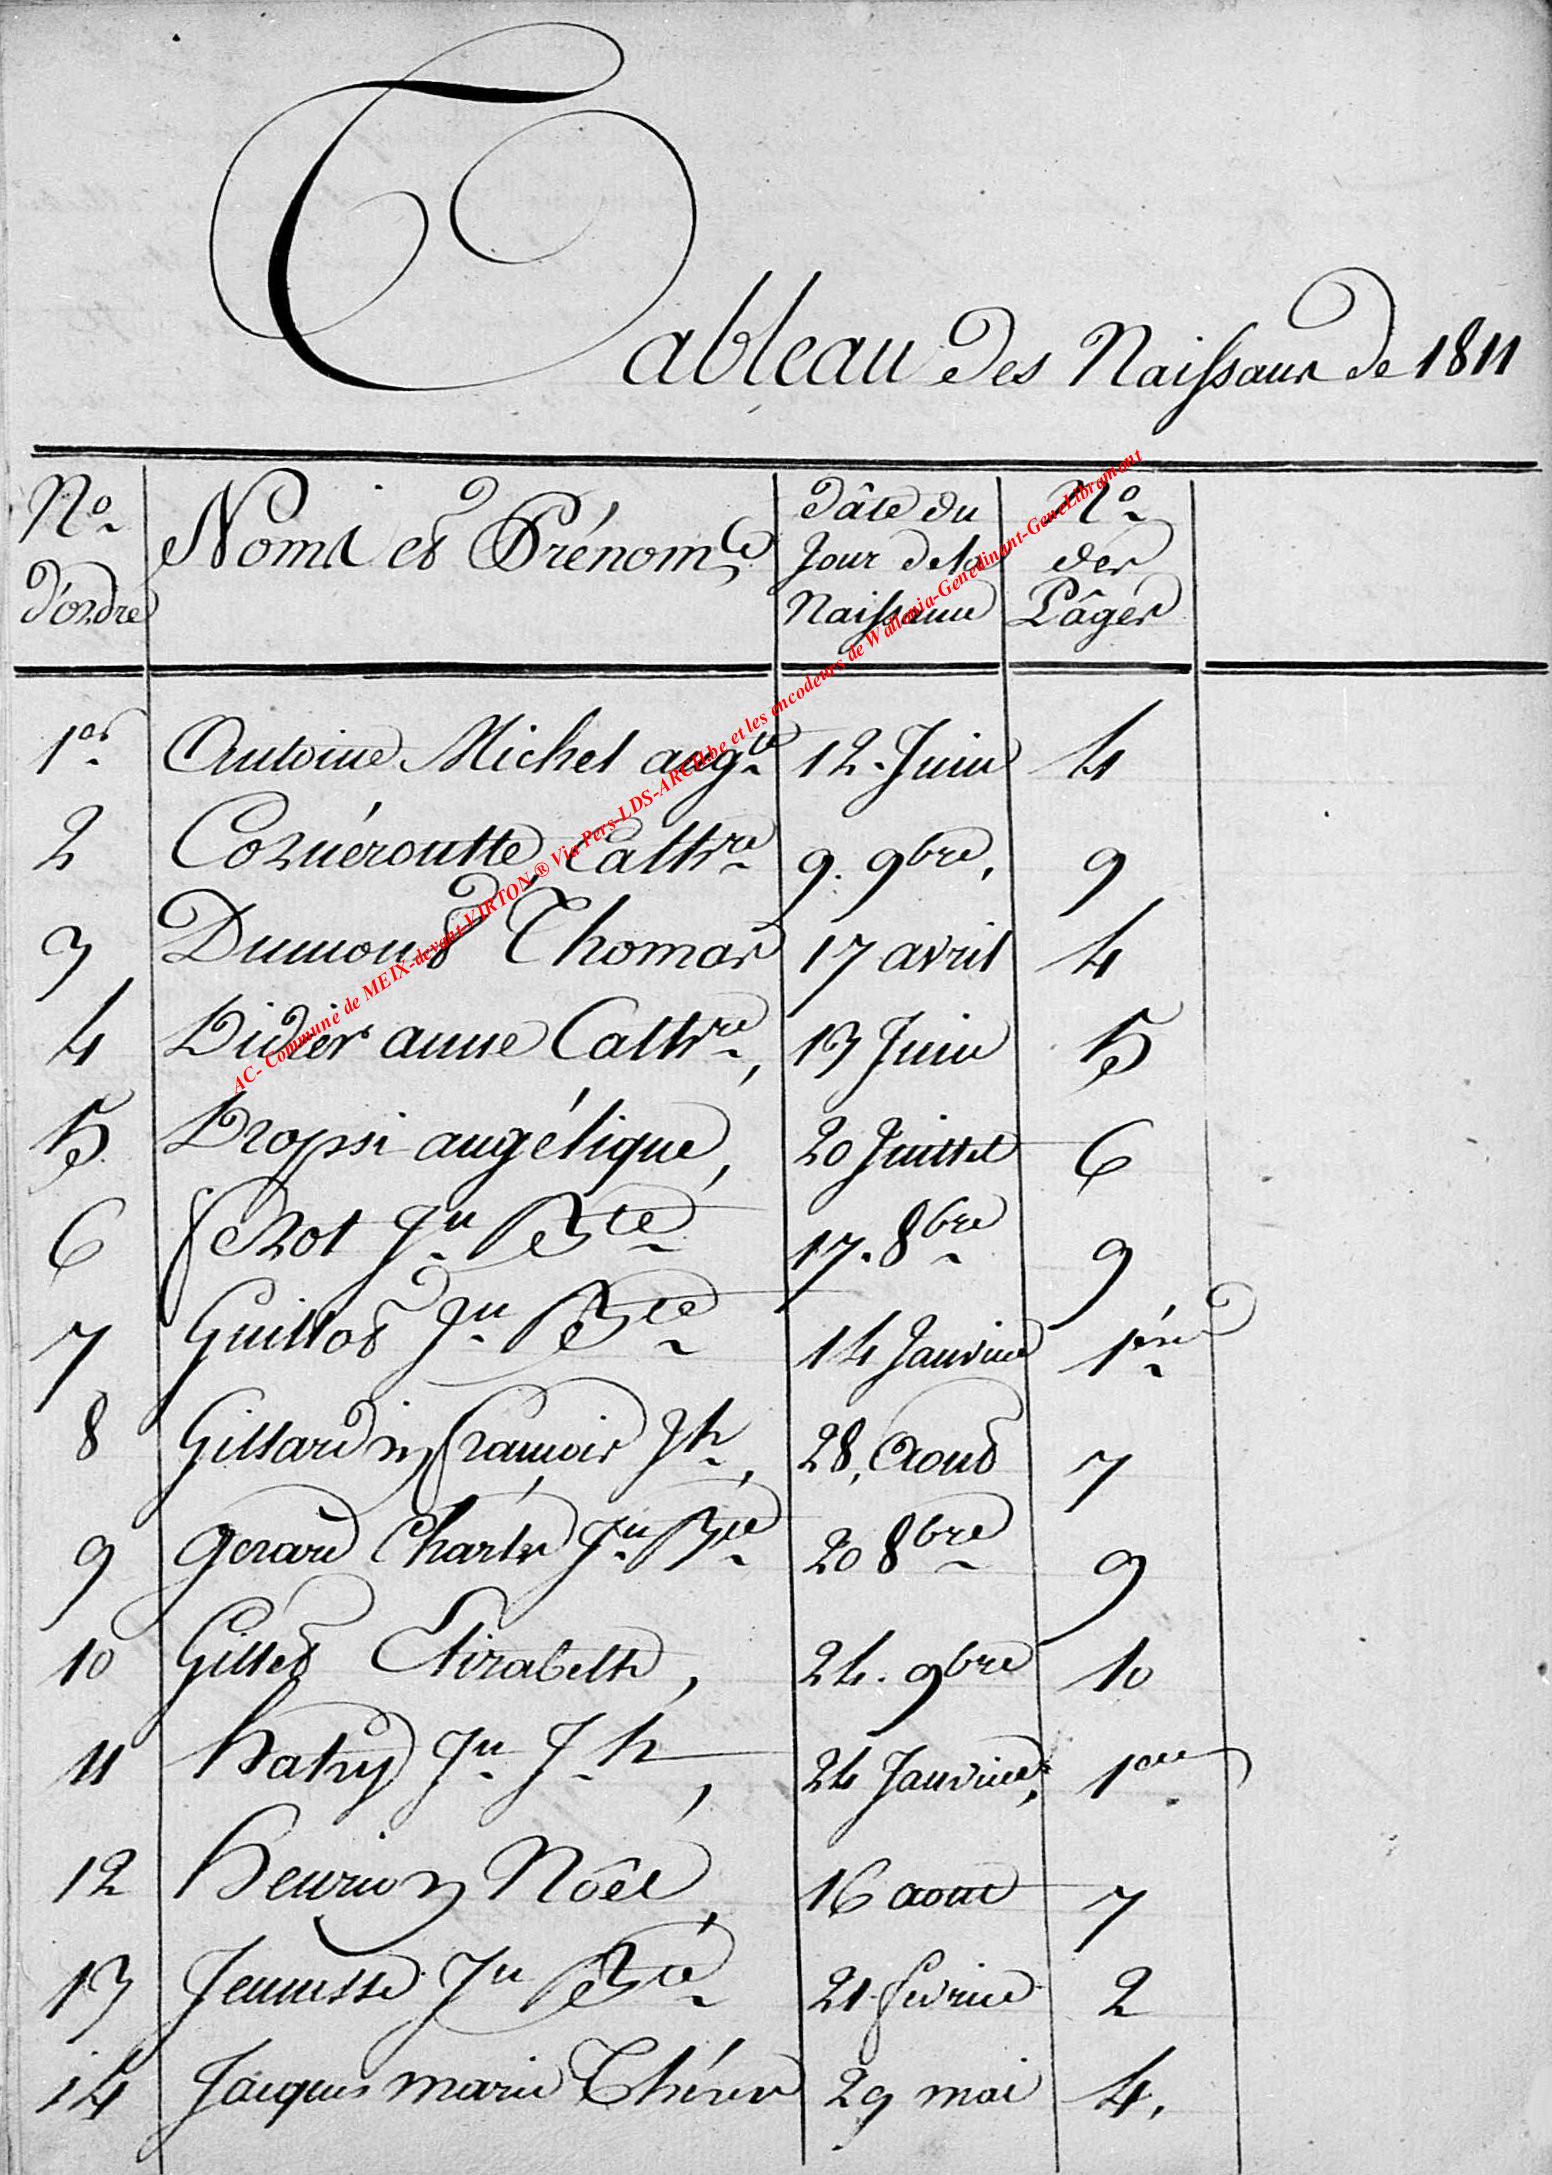 Tableau des Naissan de 1811
No d'ordre Noms et Prénoms Dâte du Jour de la Naissance No des Pâges
1er Antoine Michel augte 12. Juin 4
2 Cornéroutte, Cathre 9. 9bre, 9
3 Dumont Thomas 17 avril 4
4 Didier anne Cathre, 13 Juin 5
5 Dropsi angélique, 20 Juillet 6
6 ferot Jn Bte 17. 8bre 9
7 Guillot Jn Bte 14 Janvier 1ère
8 Gillardin françois Jh, 28, Aout 7
9 Gerard Charles Jn Bte 20 8bre 9
10 Gillet Elizabeth, 24. 9bre 10
11 hatry Jn Jh, 24 Janvier, 1ere
12 henrion Nôël, 16 aout 7
13 Jennesse Jn Bte 21 fevrier 2
14 Jacques marie Thérese 29 mai 4.
AC- Commune de MEIX-devant-VIRTON ® Via Pers-LDS-ARCH.be et les encodeurs de Wallonia-Genedinant-GeneLibramont